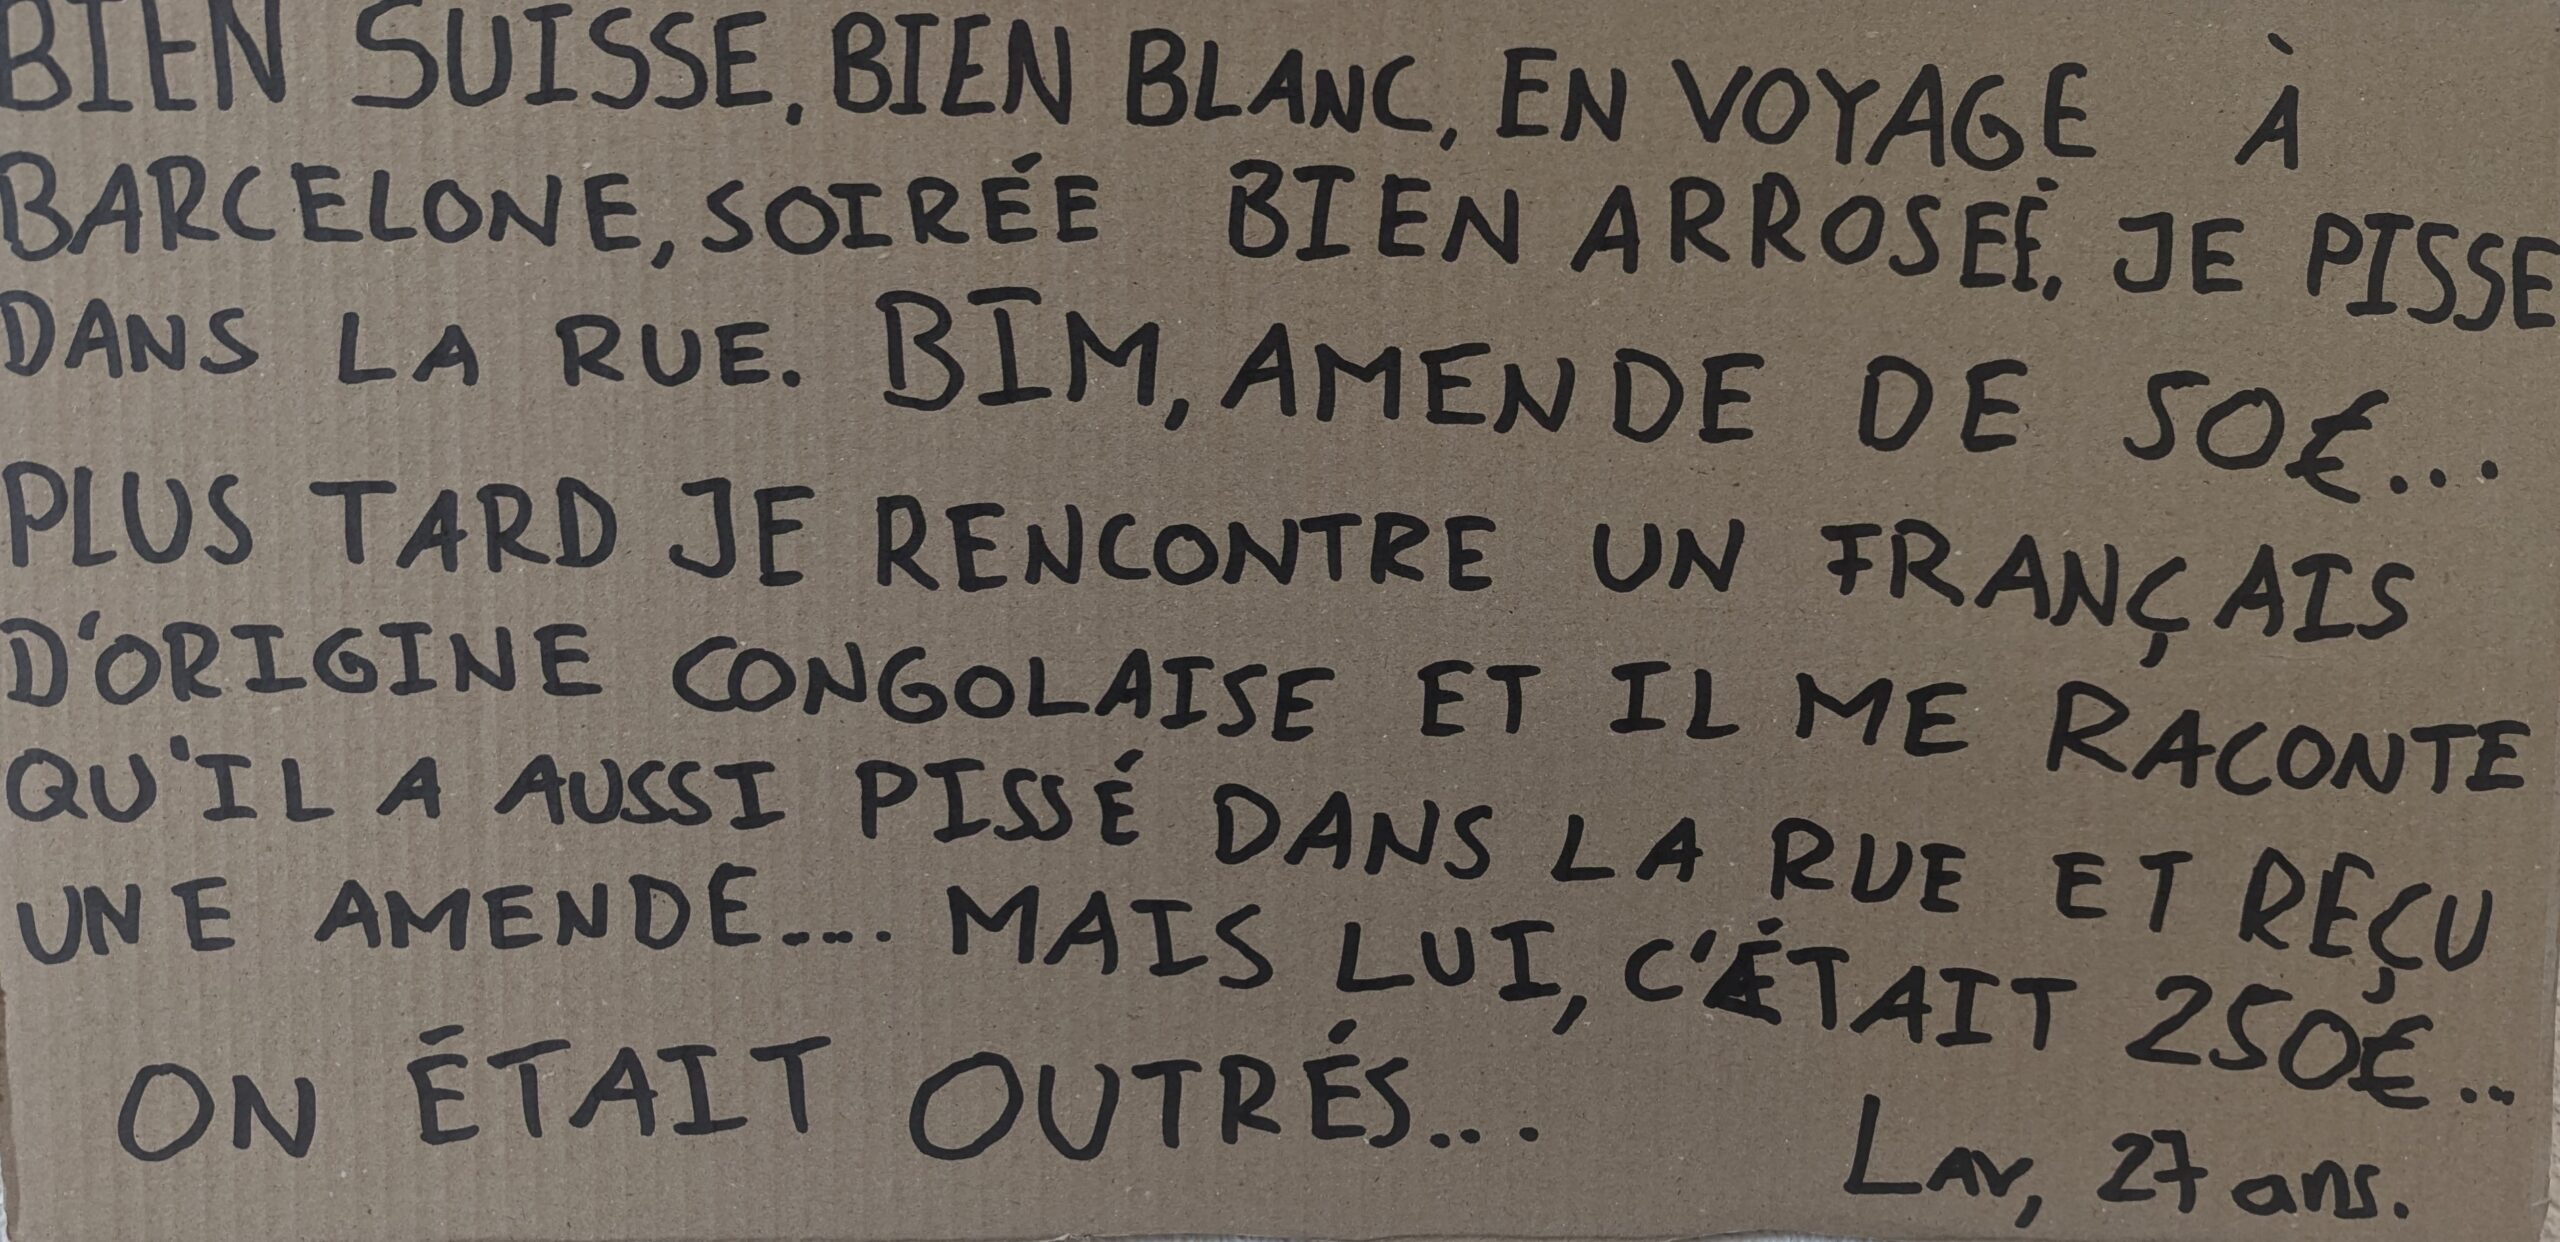 BIEN SUISSE, BIEN BLANC, EN VOYAGE À
BARCELONE, SOIRÉE BIEN ARROSEÉ, JE PISSE
DANS LA RUE. BIM, AMENDE DE 50€...
PLUS TARD JE RENCONTRE UN FRANÇAIS
D'ORIGINE CONGOLAISE ET IL ME RACONTE
QU'IL A AUSSI PISSÉ DANS LA RUE ET REÇU
UNE AMENDE.... MAIS LUI, C'ÉTAIT 250€...
ON ÉTAIT OUTRÉS...
Lav, 27 ans.